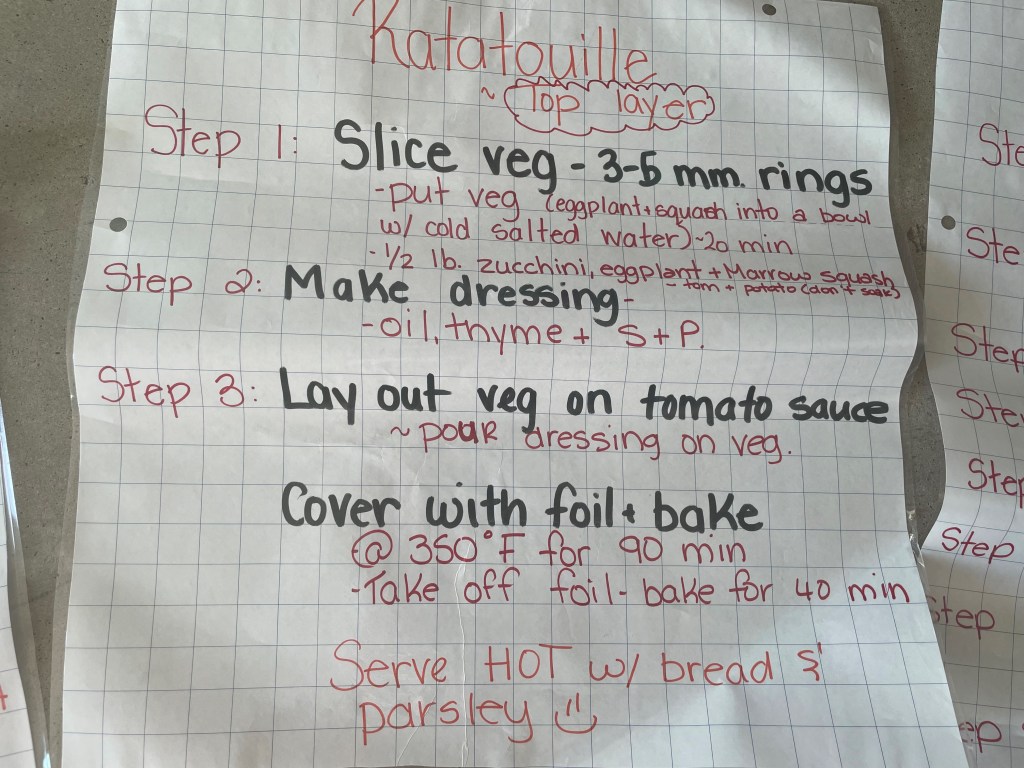 Ratatouille
~ Top layer
Step 1: Slice veg - 3-5 mm. rings
-put veg (eggplant + squash into a bowl
w/ cold salted water) ~20 min
- 1/2 lb. zucchini, eggplant + Marrow squash
- tom + potato (don't soak)
Step 2: Make dressing -
- oil, thyme + S + P.
Step 3: Lay out veg on tomato sauce
~ pour dressing on veg.
Cover with foil + bake
@ 350°F for 90 min
-Take off foil - bake for 40 min
Serve HOT w/ bread &
parsley
Ste
Ste
Step
Step
Step
Step
Step